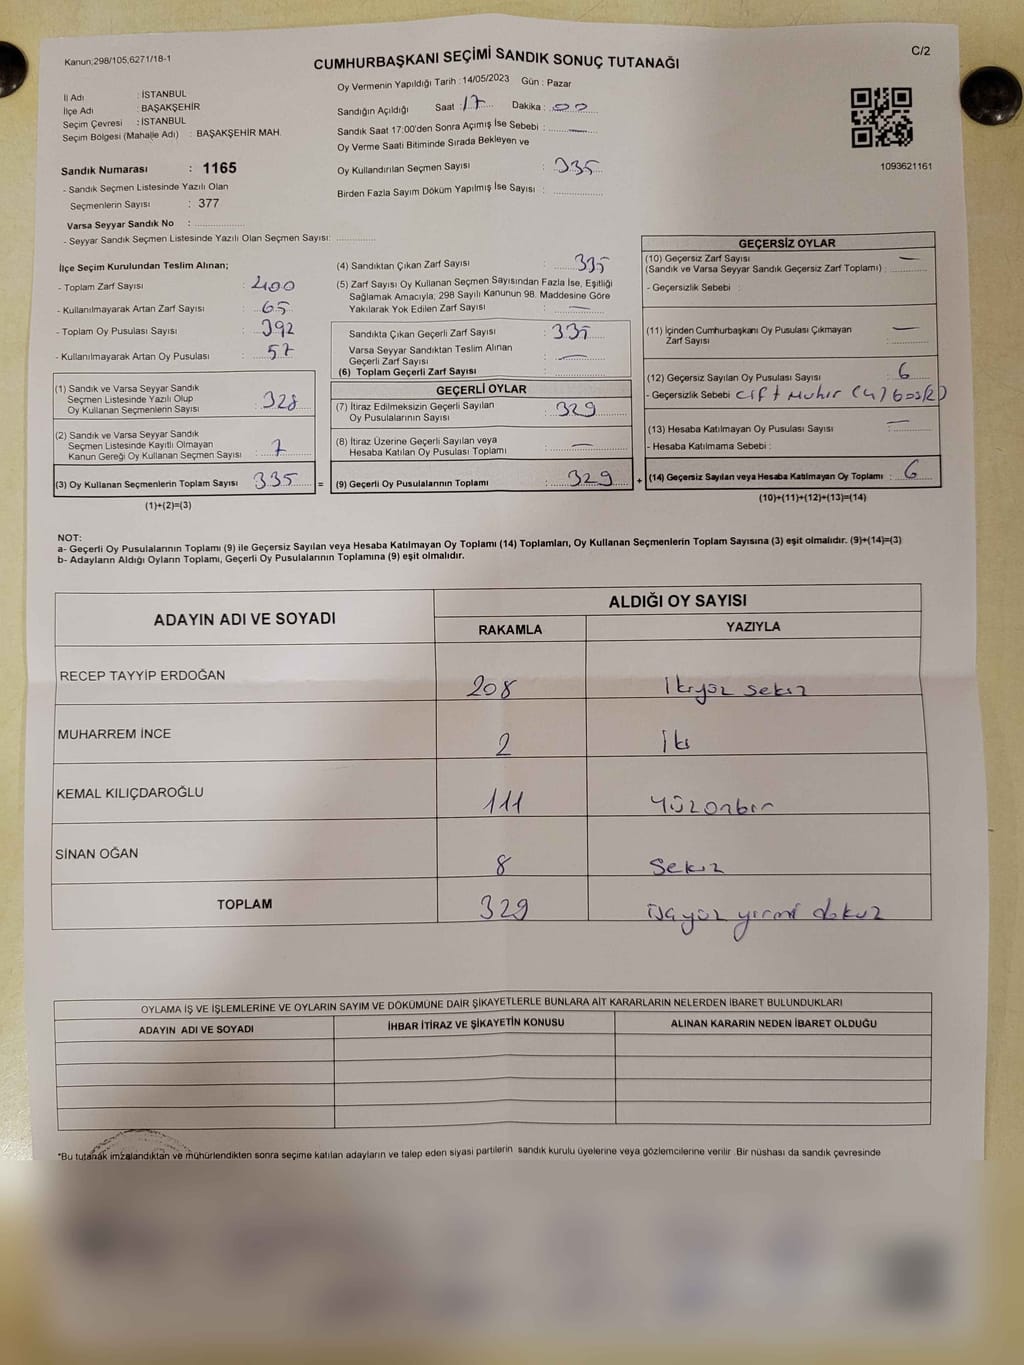 Kanun;298/105,6271/18-1
C/2
CUMHURBAŞKANI SEÇİMİ SANDIK SONUÇ TUTANAĞI
İl Adı : İSTANBUL
İlçe Adı : BAŞAKŞEHİR
Seçim Çevresi : İSTANBUL
Seçim Bölgesi (Mahalle Adı) : BAŞAKŞEHİR MAH.
Sandık Numarası : 1165
- Sandık Seçmen Listesinde Yazılı Olan
Seçmenlerin Sayısı : 377
Varsa Seyyar Sandık No :
- Seyyar Sandık Seçmen Listesinde Yazılı Olan Seçmen Sayısı:
Oy Vermenin Yapıldığı Tarih : 14/05/2023 Gün : Pazar
Sandığın Açıldığı Saat : 17 Dakika : 00
Sandık Saat 17:00'den Sonra Açımış İse Sebebi : —
Oy Verme Saati Bitiminde Sırada Bekleyen ve
Oy Kullandırılan Seçmen Sayısı : 335
Birden Fazla Sayım Döküm Yapılmış İse Sayısı :
1093621161
İlçe Seçim Kurulundan Teslim Alınan;
- Toplam Zarf Sayısı : 400
- Kullanılmayarak Artan Zarf Sayısı : 65
- Toplam Oy Pusulası Sayısı : 392
- Kullanılmayarak Artan Oy Pusulası : 57
(1) Sandık ve Varsa Seyyar Sandık
Seçmen Listesinde Yazılı Olup
Oy Kullanan Seçmenlerin Sayısı : 328
(2) Sandık ve Varsa Seyyar Sandık
Seçmen Listesinde Kayıtlı Olmayan
Kanun Gereği Oy Kullanan Seçmen Sayısı : 7
(3) Oy Kullanan Seçmenlerin Toplam Sayısı : 335 =
(1)+(2)=(3)
(4) Sandıktan Çıkan Zarf Sayısı : 335
(5) Zarf Sayısı Oy Kullanan Seçmen Sayısından Fazla İse, Eşitliği
Sağlamak Amacıyla; 298 Sayılı Kanunun 98. Maddesine Göre
Yakılarak Yok Edilen Zarf Sayısı : —
Sandıkta Çıkan Geçerli Zarf Sayısı : 335
Varsa Seyyar Sandıktan Teslim Alınan
Geçerli Zarf Sayısı : —
(6) Toplam Geçerli Zarf Sayısı :
GEÇERLİ OYLAR
(7) İtiraz Edilmeksizin Geçerli Sayılan
Oy Pusulasının Sayısı : 329
(8) İtiraz Üzerine Geçerli Sayılan veya
Hesaba Katılan Oy Pusulası Toplamı : —
(9) Geçerli Oy Pusulalarının Toplamı : 329 +
GEÇERSİZ OYLAR
(10) Geçersiz Zarf Sayısı —
(Sandık ve Varsa Seyyar Sandık Geçersiz Zarf Toplamı) :
- Geçersizlik Sebebi :
(11) İçinden Cumhurbaşkanı Oy Pusulası Çıkmayan
Zarf Sayısı : —
(12) Geçersiz Sayılan Oy Pusulası Sayısı : 6
- Geçersizlik Sebebi Çift Mühür (4) boş(2)
(13) Hesaba Katılmayan Oy Pusulası Sayısı : —
- Hesaba Katılmama Sebebi :
(14) Geçersiz Sayılan veya Hesaba Katılmayan Oy Toplamı : 6
(10)+(11)+(12)+(13)=(14)
NOT:
a- Geçerli Oy Pusulalarının Toplamı (9) ile Geçersiz Sayılan veya Hesaba Katılmayan Oy Toplamı (14) Toplamları, Oy Kullanan Seçmenlerin Toplam Sayısına (3) eşit olmalıdır. (9)+(14)=(3)
b- Adayların Aldığı Oyların Toplamı, Geçerli Oy Pusulalarının Toplamına (9) eşit olmalıdır.
ADAYIN ADI VE SOYADI ALDIĞI OY SAYISI
RAKAMLA YAZIYLA
RECEP TAYYİP ERDOĞAN 208 ikiyüz sekiz
MUHARREM İNCE 2 iki
KEMAL KILIÇDAROĞLU 111 Yüzonbir
SİNAN OĞAN 8 Sekiz
TOPLAM 329 üçyüz yirmi dokuz
OYLAMA İŞ VE İŞLEMLERİNE VE OYLARIN SAYIM VE DÖKÜMÜNE DAİR ŞİKAYETLERLE BUNLARA AİT KARARLARIN NELERDEN İBARET BULUNDUKLARI
ADAYIN ADI VE SOYADI İHBAR İTİRAZ VE ŞİKAYETİN KONUSU ALINAN KARARIN NEDEN İBARET OLDUĞU
*Bu tutanak imzalandıktan ve mühürlendikten sonra seçime katılan adayların ve talep eden siyasi partilerin sandık kurulu üyelerine veya gözlemcilerine verilir. Bir nüshası da sandık çevresinde